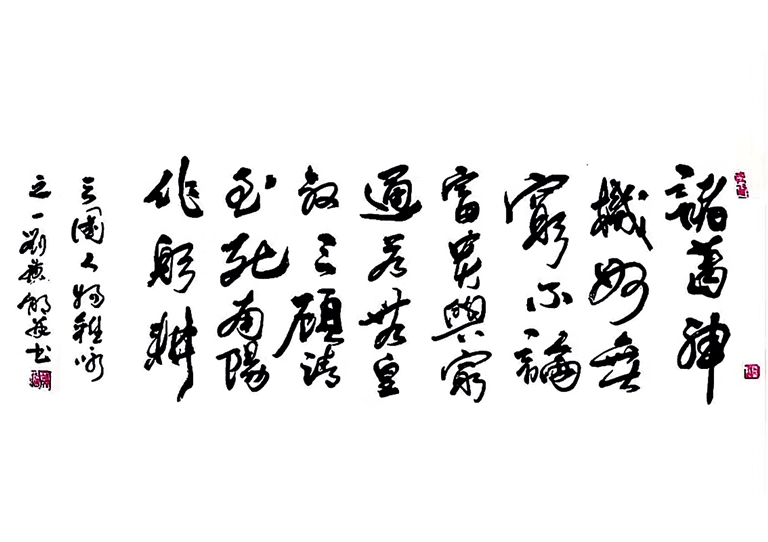 諸葛神
機妙無
窮不論
富貴與窮
通若無皇
叔三顧請
至死南陽
作躬耕
三國人物雜詠
之一劉書